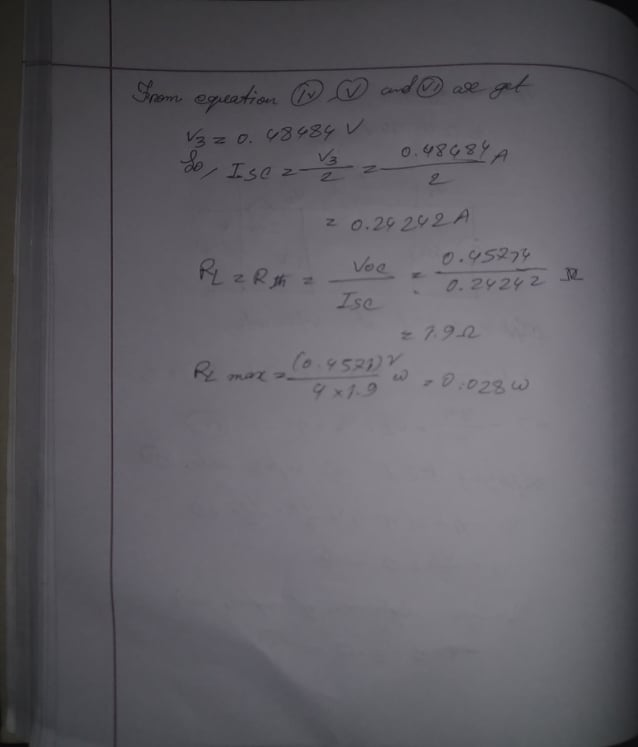 From equation (iv) (v) and (vi) we get
V3 = 0.48484 V
So, Isc = V3/2 = 0.48484/2 A
= 0.24242 A
RL = Rth = Voc/Isc = 0.45774/0.24242 Ω
= 1.9Ω
PL max = (0.4577)²/4×1.9 w = 0.028 w